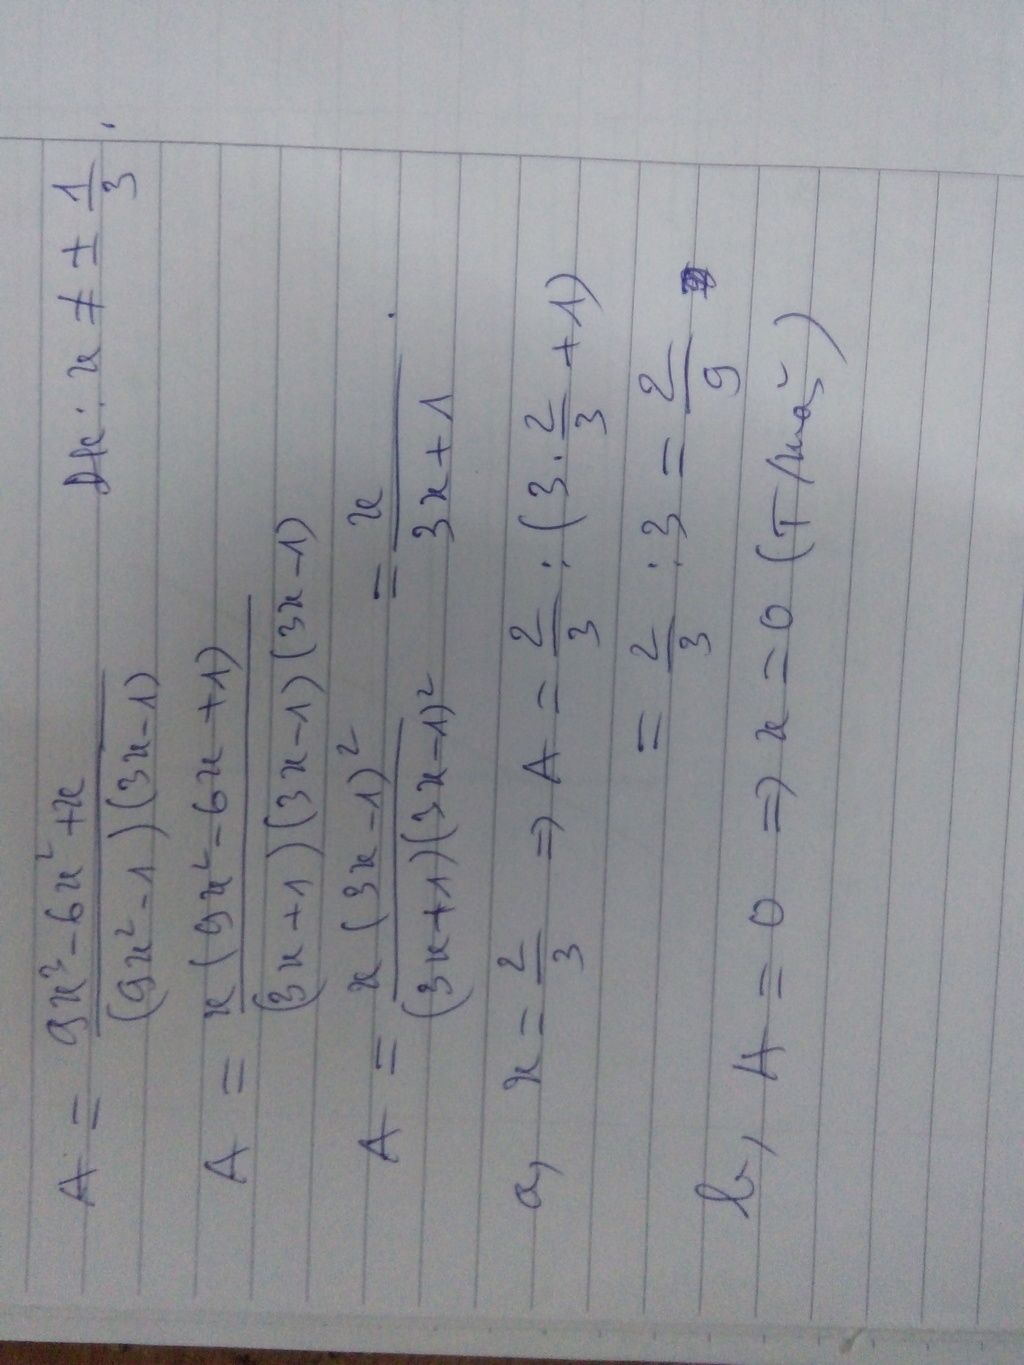 A = \frac{9x^3 - 6x^2 + x}{(9x^2 - 1)(3x - 1)} Đk: x ≠ ± \frac{1}{3}.
A = \frac{x(9x^2 - 6x + 1)}{(3x + 1)(3x - 1)(3x - 1)}
A = \frac{x(3x - 1)^2}{(3x + 1)(3x - 1)^2} = \frac{x}{3x + 1}.
a, x = \frac{2}{3} => A = \frac{2}{3} : (3 . \frac{2}{3} + 1)
= \frac{2}{3} : 3 = \frac{2}{9}
b, A = 0 => x = 0 (T/mãn)